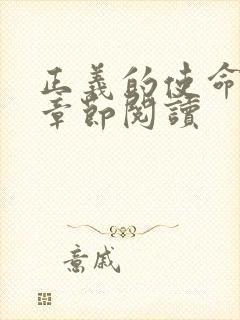 正義的使命
章節閱讀
意戚